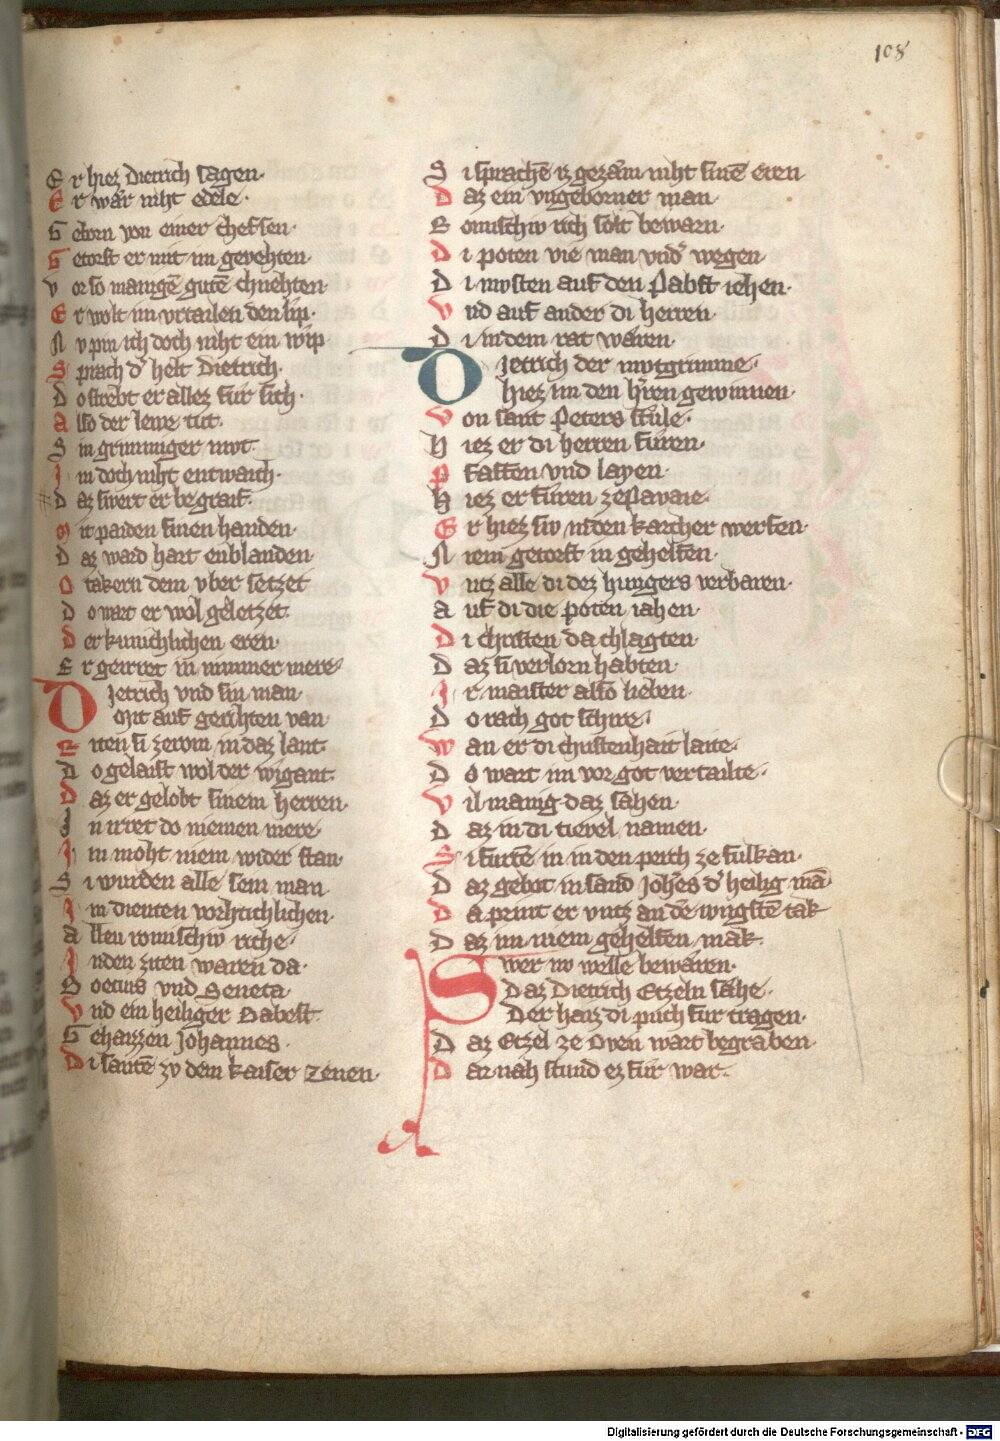 108
Er hiez Dietrich sagen·
Er wår niht edele·
Geborn von einer chefsen·
Getorst er mit im gevehten·
vor so manigē gutē chnehten·
Er wolt im vrtailen den lip·
Nv pin ich doch niht ein wip
Sprach d' helt Dietrich·
Do strebt er allez fur sich·
Also der lewe tut·
Sin grimmiger mvt
Im doch niht entwaich·
Daz swert er begraif·
Mit paiden sinen handen·
Daz ward hart enblanden·
Otakern dem vber setzet
Do wart er wol geletzet·
Der kunichlichen eren·
Er geirret in nimmer mere·
Dietrich vnd sin man·
Mit auf gerihten van·
Riten si zerom in daz lant·
Do gelaist wol der wigant·
Daz er gelobt sinem herren·
In irret do niemen mere·
Im moht niem wider stan·
Si wurden alle sein man
Im dienten vorhtichlichen·
Allev romischiv riche·
Inden ziten waren da·
Boetius vnd Seneca·
Vnd ein heiliger Babest·
Gehaizzen Johannes·
Di santē zv dem kaiser Zenen·
Si sprachē iz gezåm niht sinē eren
Daz ein vngeborner man·
Romischiv rich solt bewarn·
Di poten vie man vnd' wegen
Di mvsten auf den Pabst iehen·
Vnd auf ander di herren·
Di in dem rat waren·
Dietrich der mvtgrimme·
hiez im den h'ren gewinnen·
Von sant Peters stule·
Hiez er di herren furen·
Pfaffen vnd layen·
Hiez er furen zepavaie·
Er hiez siv inden karcher werfen·
Niem getorst in gehelfen·
Vntz alle di dez hungers verbaren·
Auf di die poten iahen·
Di christen da chlagten·
Daz si verlorn habten·
Ir maister also lieben·
Do rach got schire·
Wan er di christenhait laite·
Do wart im vor got vertailte·
Vil manig daz sahen·
Daz in di tievel namen·
Si furtē in in den perch ze fulkan·
Daz gebot in sand Joh'es d' heilig mā·
Da print er vntz an dē iungstē tak
Daz im niem gehelfen mak·
Swer nv welle bewåren·
Daz Dietrich Etzeln såhe·
Der haiz di půch fur tragen·
Daz Etzel ze Oven wart begraben·
Dar nah stund ez fur war·
Digitalisierung gefördert durch die Deutsche Forschungsgemeinschaft - DFG